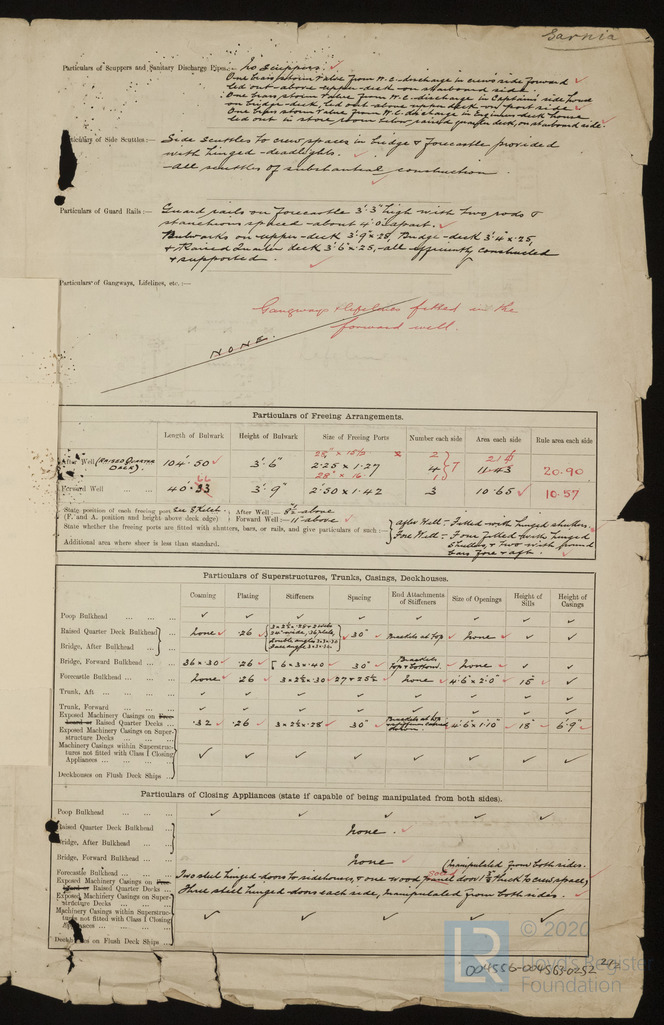 Sarnia
Particulars of Scuppers and Sanitary Discharge Pipes:— No Scuppers.
One brass storm valve from W.C. discharge in crew's side forward
led out above upper deck on starboard side.
One brass storm valve from W.C. discharge in Captain's side
on bridge deck, led out above upper deck on port side
One brass storm valve from W.C. discharge in Engineers deck house
led out in store room below raised quarter deck, on starboard side.
Particulars of Side Scuttles:— Side Scuttles to crew spaces in bridge & forecastle provided
with hinged deadlights.
All scuttles of substantial construction.
Particulars of Guard Rails:— Guard rails on forecastle 3'.3" high with two rods &
stanchions spaced about 4'.0 apart.
Bulwarks on upper deck 3'.9" x .28, Bridge deck 3'.4" x .25,
& Raised Quarter deck 3'.6" x .25, all efficiently constructed
& supported.
Particulars of Gangways, Lifelines, etc.:—
Gangways & lifelines fitted in the
forward well.
NONE.
Particulars of Freeing Arrangements.
Length of Bulwark Height of Bulwark Size of Freeing Ports Number each side Area each side Rule area each side
After Well (RAISED QUARTER DECK). 104'.50 3'.6" 2.25 x 1.27 4 11.43 20.90
Forward Well 40'.33 3'.9" 2'.50 x 1.42 3 10.65 10.57
State position of each freeing port (F. and A. position and height above deck edge) See Sketch. After Well:— 8½ above
Forward Well:— 11" above
State whether the freeing ports are fitted with shutters, bars, or rails, and give particulars of such:— After Well - Fitted with hinged shutters.
Fore Well - One fitted with hinged
shutters, & two with round
bars fore & aft.
Additional area where sheer is less than standard.
Particulars of Superstructures, Trunks, Casings, Deckhouses.
Coaming Plating Stiffeners Spacing End Attachments of Stiffeners Size of Openings Height of Sills Height of Casings
Poop Bulkhead
Raised Quarter Deck Bulkhead None .26 30" Brackets at top None
Bridge, After Bulkhead
Bridge, Forward Bulkhead 36 x .30 .26 [ 6 x 3 x .40 30" Brackets top & bottom None
Forecastle Bulkhead None .26 3 x 2½ x .30 27 & 25½ None 4'.6" x 2'.0" 18"
Trunk, Aft
Trunk, Forward
Exposed Machinery Casings on Raised Quarter Decks .32 .26 3 x 2½ x .28 30" 4'.6 x 1'.10" 18" 6'.9"
Exposed Machinery Casings on Superstructure Decks
Machinery Casings within Superstructures not fitted with Class I Closing Appliances
Deckhouses on Flush Deck Ships
Particulars of Closing Appliances (state if capable of being manipulated from both sides).
Poop Bulkhead
Raised Quarter Deck Bulkhead None.
Bridge, After Bulkhead
Bridge, Forward Bulkhead None
(Manipulated from both sides.
Forecastle Bulkhead Two steel hinged doors to sidehouse, & one wood solid panel door 1½ thick to crew space
Exposed Machinery Casings on Raised Quarter Decks Three steel hinged doors each side, manipulated from both sides.
Exposed Machinery Casings on Superstructure Decks
Machinery Casings within Superstructures not fitted with Class I Closing Appliances
Deckhouses on Flush Deck Ships
© 2020
Lloyd's Register
Foundation
LR
004556-004563-0252